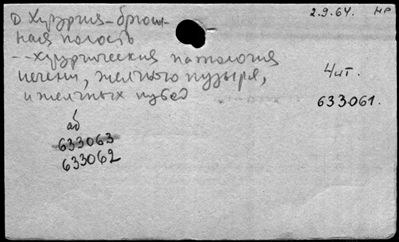 D Хирургия-брюш-
ная полость
2.9.64. НР
--хирургическая патология
печени, желчного пузыря,
и желчных
Чит.
633061.
аб
633063
633062